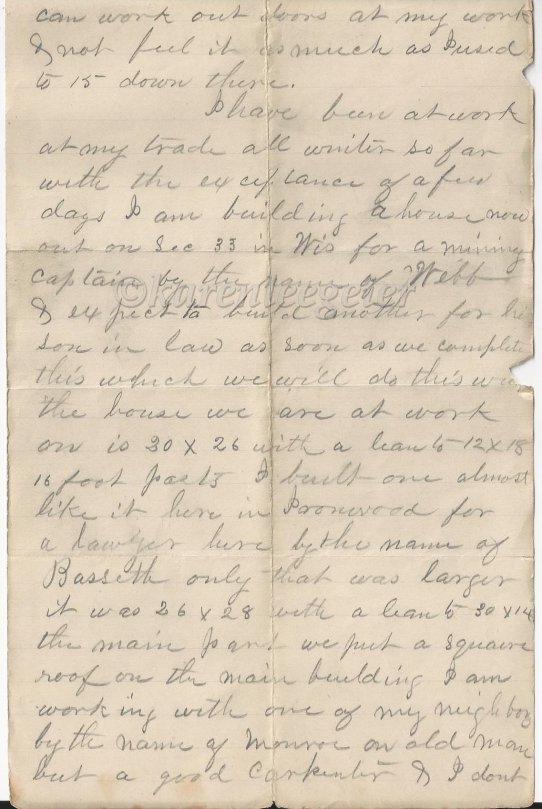 can work out doors at my work
& not feel it as much as I used
to 15 down there.
I have been at work
at my trade all winter so far
with the exceptance of a few
days I am building a house now
out on Sec 33 in Wis for a mining
captain by the name of Webb
& expect to build another for hi
son in law as soon as we complete
this which we will do this wee
the house we are at work
on is 30 x 26 with a lean to 12 x 18
16 foot posts I built one almost
like it here in Ironwood for
a lawyer here by the name of
Bassett only that was larger
it was 26 x 28 with a lean to 30 x 14
the main part we put a square
roof on the main building I am
working with one of my neighbors
by the name of Monroe an old man
but a good carpenter & I dont
©karenlegeter